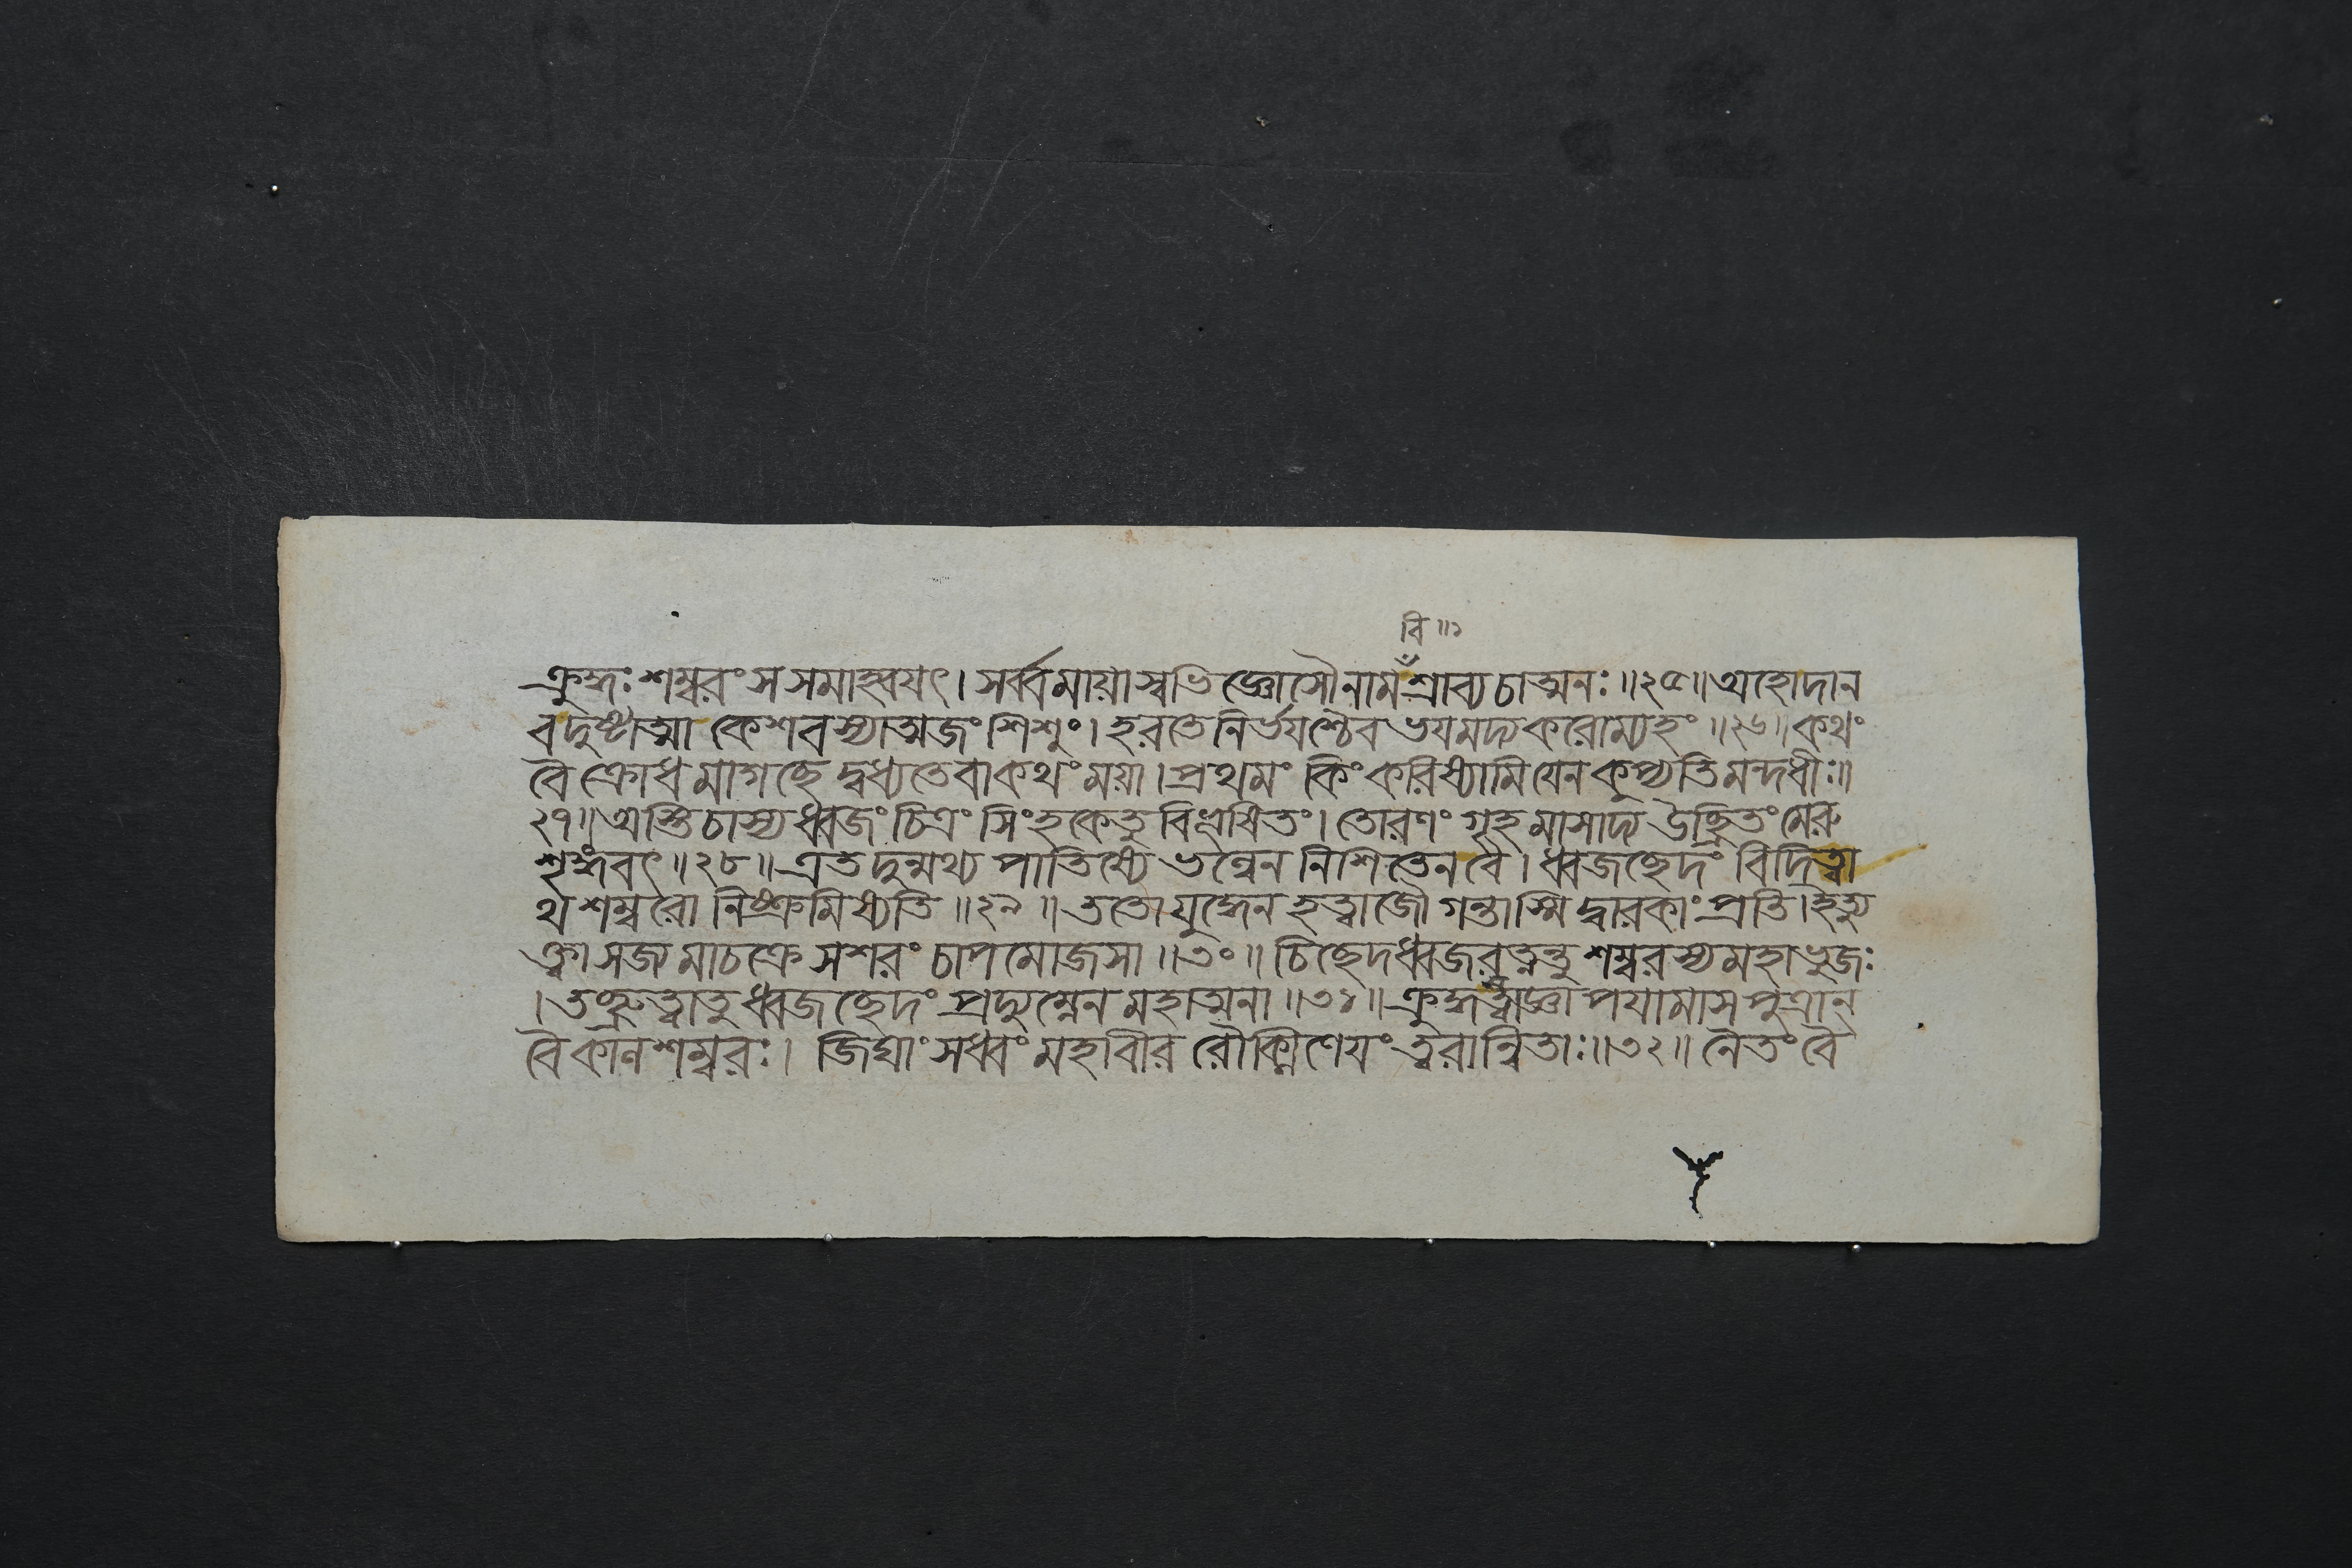 বি ॥১
ক্রুদ্ধঃ শম্বরং স সমাহ্বযৎ। সর্ব্বমায়াস্বভিজ্ঞোসৌ নাম শ্রাব্য চাত্মনঃ ॥২৫॥ অহোদান
বদুষ্টাত্মা কেশবস্যাত্মজং শিশুং। হরতে নির্ভযশ্চৈব ভযমদ্য করোম্যহং ॥২৬॥ কথং
বৈ ক্রোধমাগচ্ছে দ্বধ্যতে বা কথং ময়া। প্রথমং কিং করিষ্যামি যেন কুপ্যতি মন্দধীঃ॥
২৭॥ অস্তি চাস্য ধ্বজং চিত্রং সিংহকেতুবিভূষিতং। তোরণং গৃহমাসাদ্য উচ্ছ্রিতং মেরু
শৃঙ্গবৎ ॥২৮॥ এতদুন্মথ্য পাতিষ্যে ভল্লেন নিশিতেন বৈ। ধ্বজচ্ছেদং বিদিত্বা
থ শম্বরো নিষ্ক্রমিষ্যতি ॥২৯॥ ততো যুদ্ধেন হত্বাজৌ গন্তাস্মি দ্বারকাং প্রতি। ইত্যু
ক্ত্বা সজ্যমাচক্রে সশরং চাপমোজসা ॥৩০॥ চিচ্ছেদ ধ্বজরত্নন্তু শম্বরস্য মহাভুজঃ
। তচ্ছ্রুত্বা তু ধ্বজচ্ছেদং প্রদ্যুম্নেন মহাত্মনা ॥৩১॥ ক্রুদ্ধস্ত্বাজ্ঞাপযামাস পুত্রান্
বৈ কালশম্বরঃ। জিঘাংসধ্বং মহাবীর রৌক্মিণেযং ত্বরান্বিতাঃ॥৩২॥ নৈতং বৈ